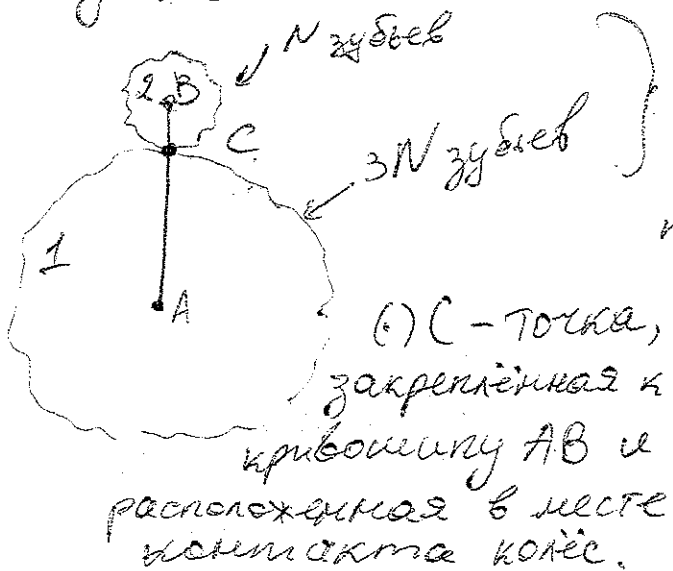 N зубьев
2 B
C
3N зубьев
1
A
(·) C – точка,
закреплённая к
кривошипу AB и
расположенная в месте
контакта колёс.